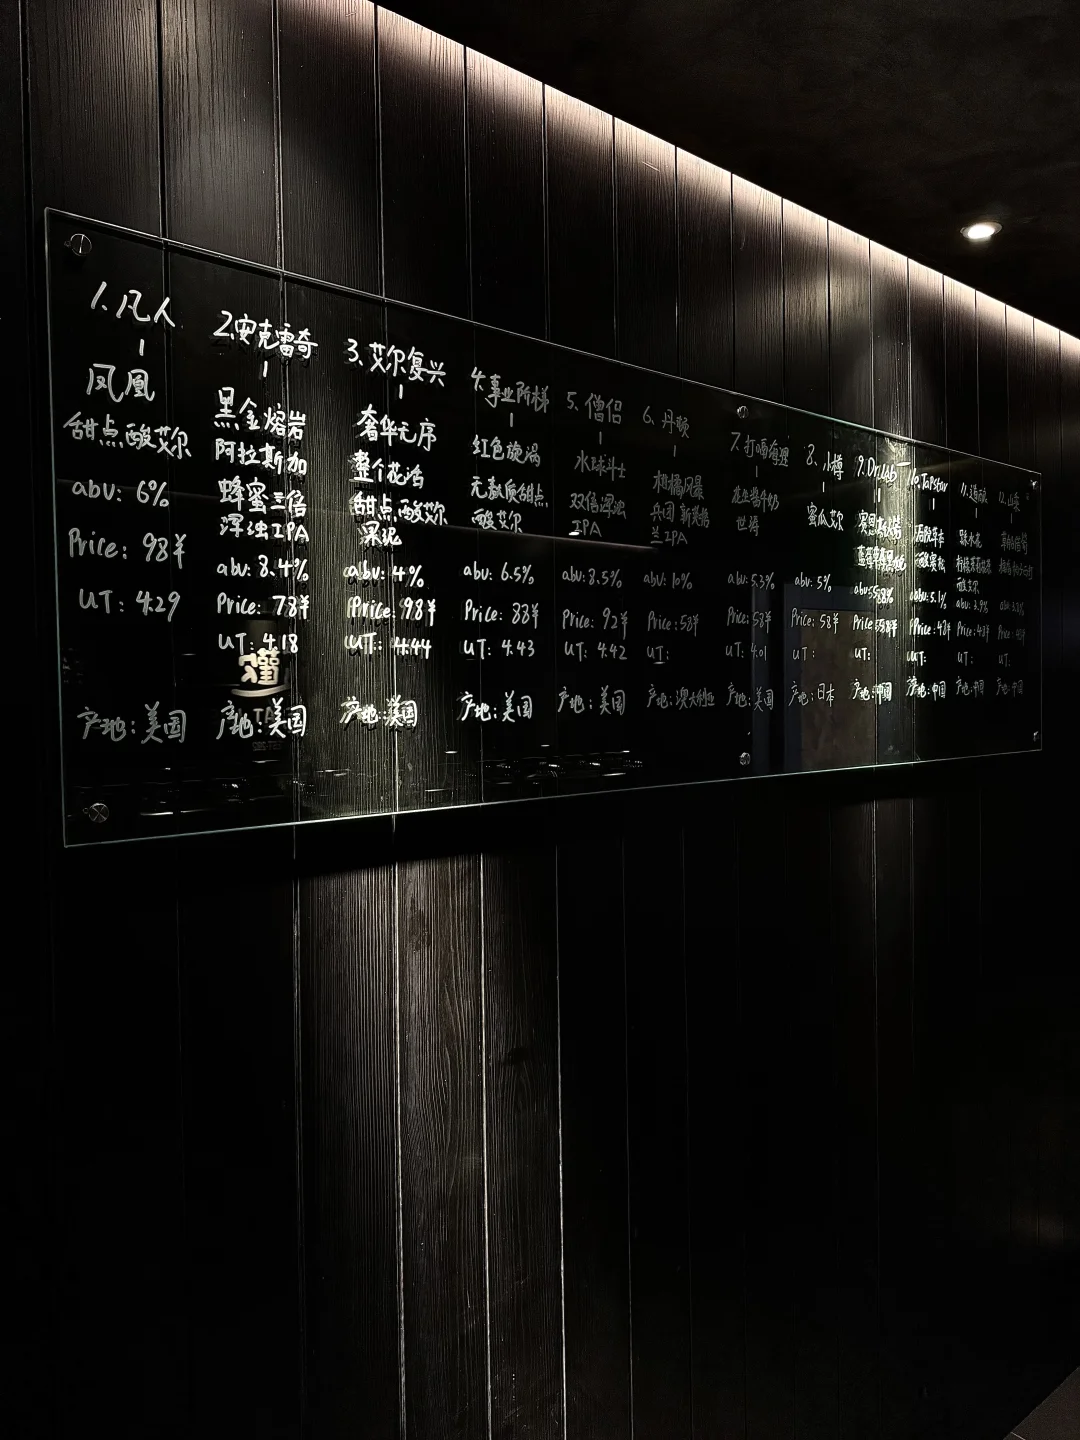 1.凡人
凤凰
甜点酸艾尔
abv: 6%
Price: 98¥
UT: 4.29
产地:美国
2.安克雷奇
黑金熔岩
阿拉斯加
蜂蜜三倍
浑浊IPA
abv: 8.4%
Price: 78¥
UT: 4.18
产地:美国
3.艾尔复兴
奢华无序
整个花活
甜点酸艾尔
果泥
abv: 4%
Price: 98¥
UT: 4.44
产地:美国
4.事业阶梯
红色旋涡
无麸质甜点
酸艾尔
abv: 6.5%
Price: 88¥
UT: 4.43
产地:美国
5.僧侣
水球斗士
双倍浑浊
IPA
abv: 8.5%
Price: 92¥
UT: 4.42
产地:美国
6.丹顿
柑橘风暴
兵团 新英格
兰IPA
abv: 10%
Price: 58¥
UT:
产地:澳大利亚
7.打嗝海狸
花生酱牛奶
世涛
abv: 5.3%
Price: 58¥
UT: 4.01
产地:美国
8.小樽
蜜瓜艾尔
abv: 5%
Price: 58¥
UT:
产地:日本
9.Dr.Lab
abv: 5.8%
Price: 58¥
UT:
产地:中国
10.Tapstar
abv: 5.1%
Price: 48¥
UT:
产地:中国
11.
酸艾尔
abv: 3.9%
Price: 48¥
UT:
产地:中国
12.
Price:
UT:
产地:中国